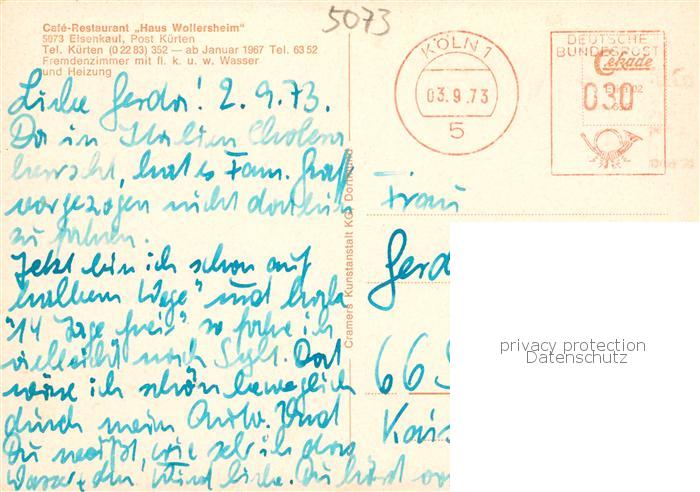 5073
Café-Restaurant „Haus Wollersheim"
5073 Eisenkaul, Post Kürten
Tel. Kürten (0 22 83) 352 — ab Januar 1967 Tel. 63 52
Fremdenzimmer mit fl. k. u. w. Wasser
und Heizung
KÖLN 1
03.9.73
5
DEUTSCHE
BUNDESPOST
Cekade
030
Liebe Gerda! 2.9.73.
Da in Italien Cholera
herrscht, hat es Fam. Graf
vorgezogen nicht dorthin
zu fahren.
Jetzt bin ich schon auf
halbem Wege" und habe
"14 Tage frei" so fahre ich
vielleicht nach Sylt. Dort
wäre ich schön beweglich
durch mein Auto. Und
Du weißt, wie sehr ich das
Wasser + den Wind liebe. Du hörst
Cramers Kunstanstalt KG, Dortmund
Frau
Gerd
66
Kais
privacy protection
Datenschutz